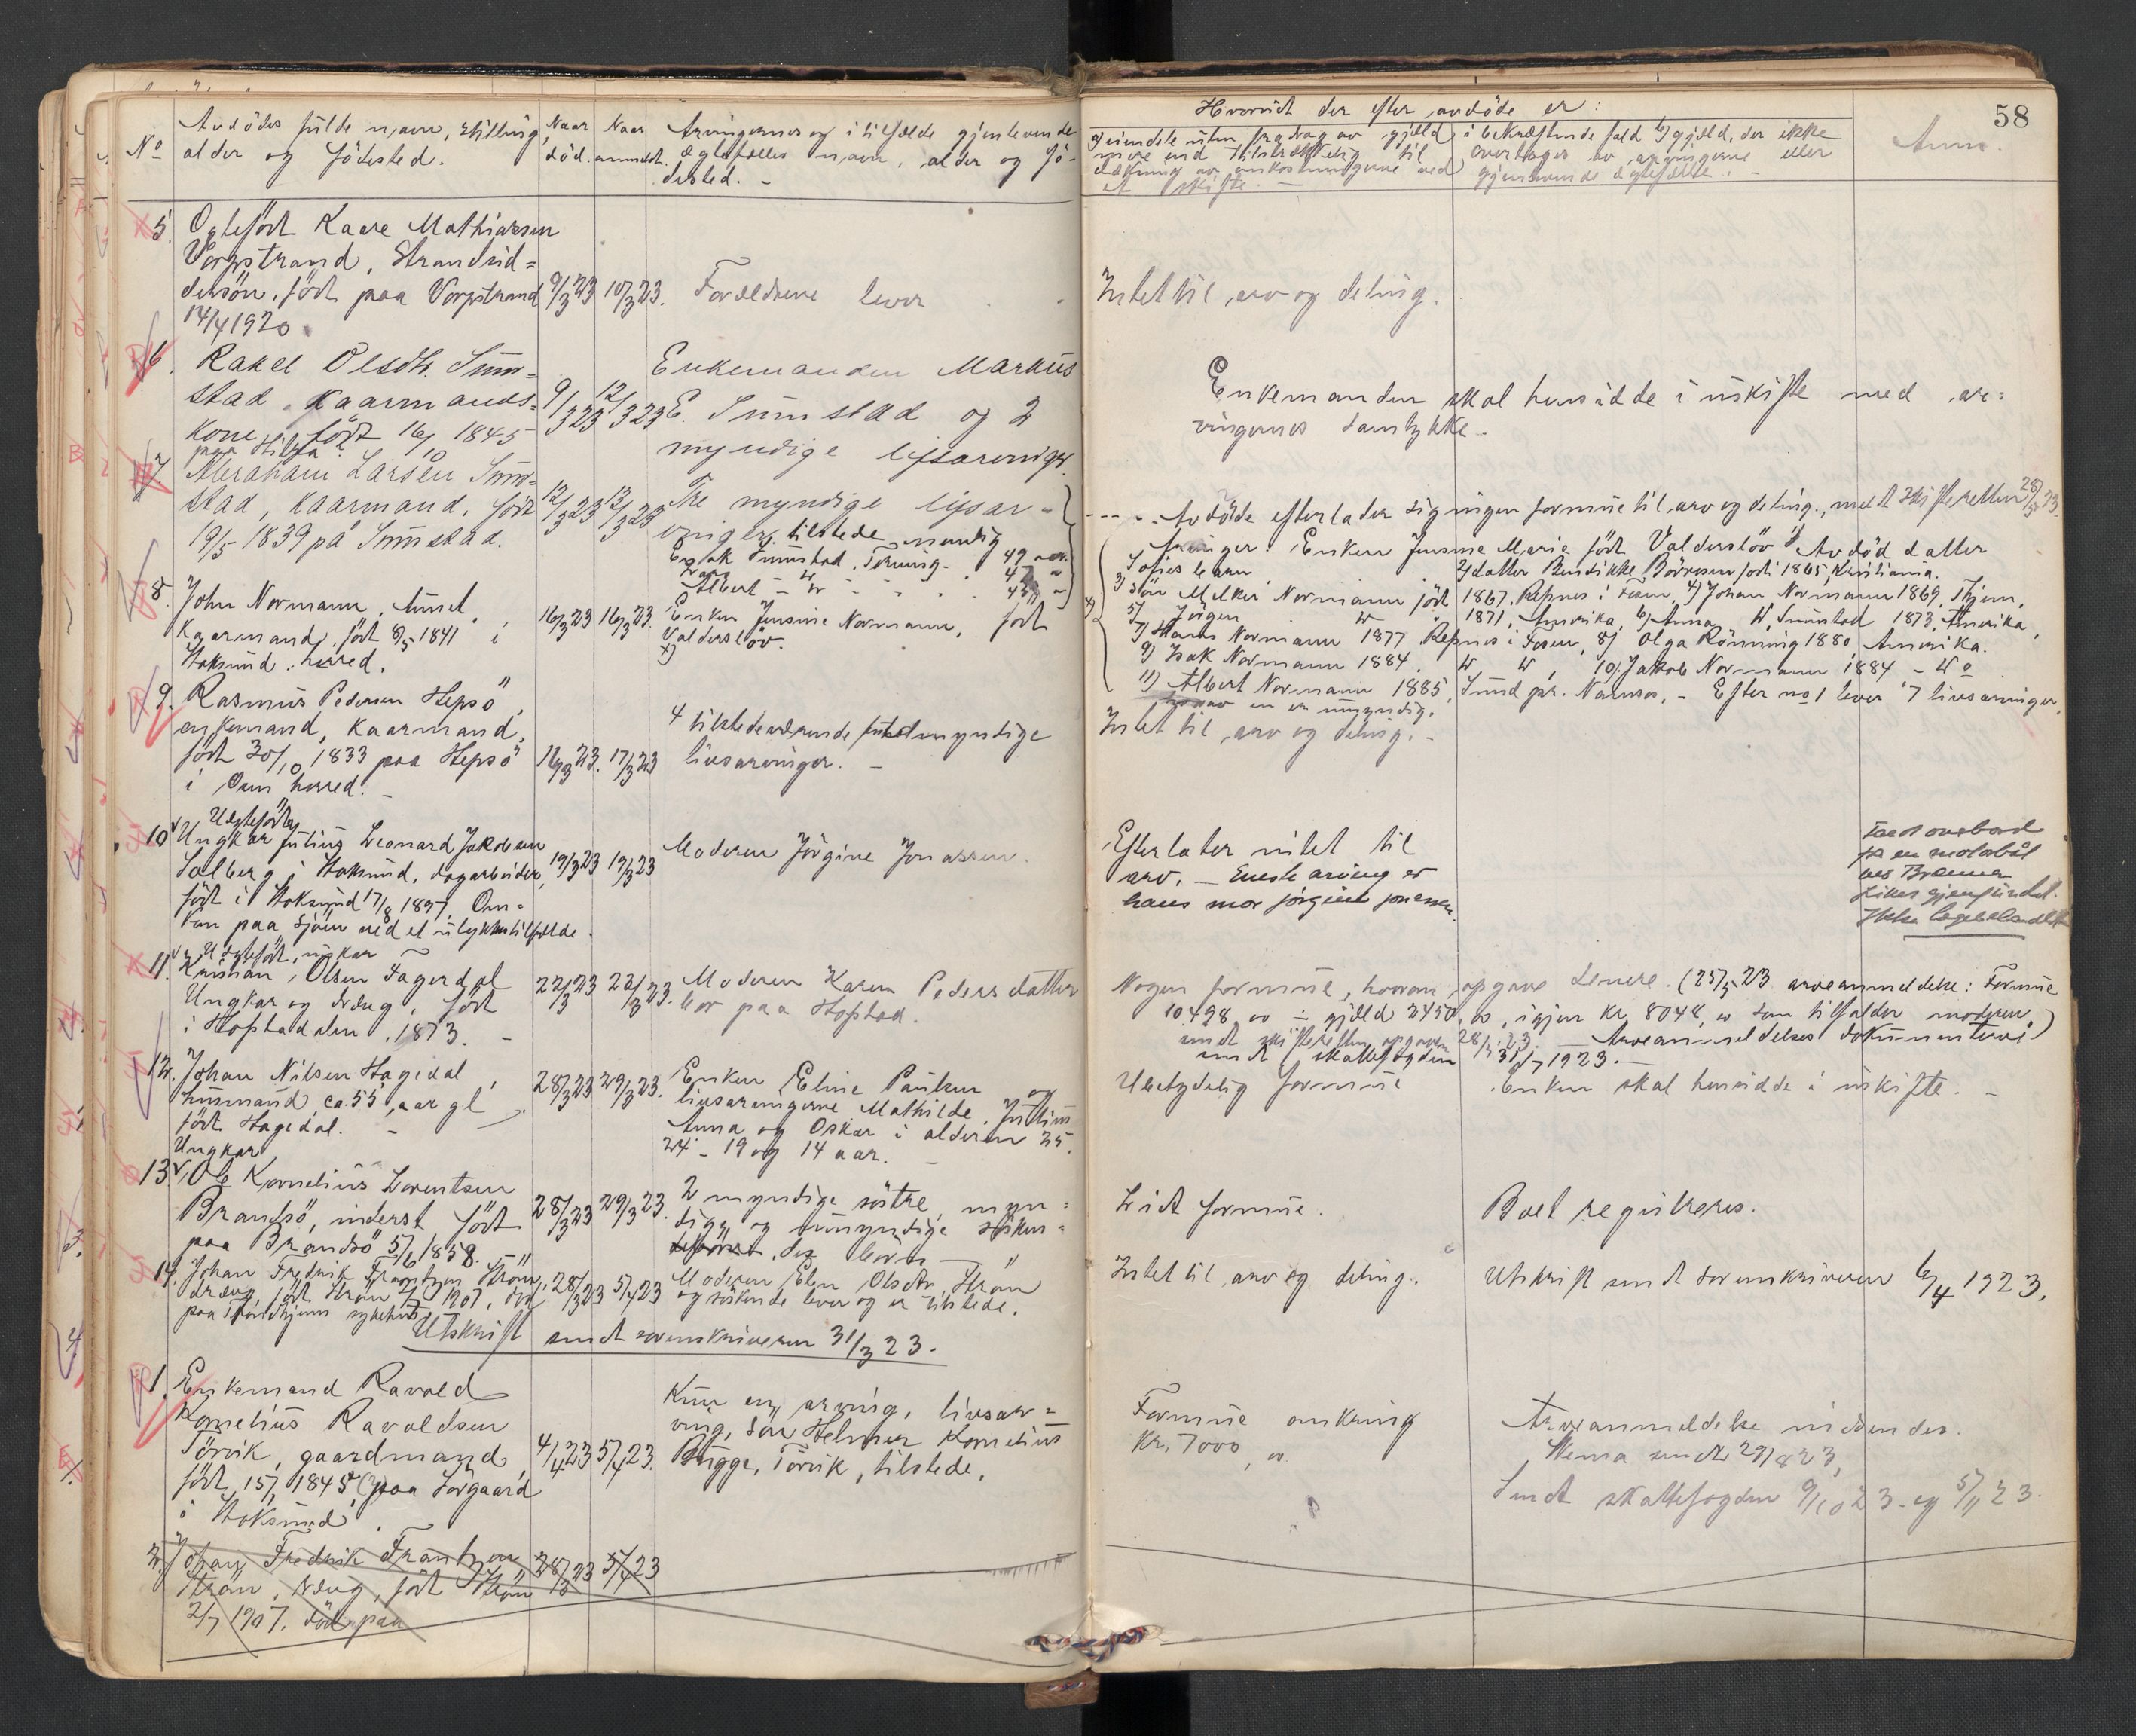 No
Avdødes fulde navn, stilling,
alder og fødested.
Naar
død.
Naar
anmeldt.
Arvingernes og i tilfælde gjenlevende
ægtefælles navn, alder og fø-
dested. -
5. Ogtefødt Kaare Mathiassen
Vorpstrand, Strandsid=
dersøn, født paa Vorpstrand
14/4 1920
9/3 23
10/3 23.
Forældrene lever
6. Rakel Olsdtr. Sumstad
stad, Kaarmands=
kone, født 16/10 1845
paa Hilfa
9/3 23
12/3 23
Enkemanden Markus
E. Sumstad og 2
myndige livsarvinger.
7. Abraham Larsen Sum=
stad, kaarmand, født
19/5 1839 på Sumstad.
12/3 23
13/3 23
Tre myndige livsar-
vinger tilstede nemlig
Enok Sumstad, Terning - 49 aar.
47 "
Albert - 45 "
8. John Normann,
Kaarmand, født 8/5 1841 i
Stoksund herred.
16/3 23
16/3 23.
Enken Jensine Normann, født
Valderslöv.
x)
9. Rasmus Pedersen Hepsö,
enkemand, kaarmand,
født 30/10 1833 paa Hepsö
i Osen herred. -
16/3 23.
17/3 23
4 tilstedeværende myndige
livsarvinger. -
Uægtefödt
10 Ungkar Julius Leonard Jakobsen
Solberg i Stoksund, dagarbeider,
født i Stoksund 17/8 1897. Om=
kom paa sjøen ved et ulykkestilfælde.
19/3 23
19/3 23
Moderen Jörgine Jonassen.
Uægtefödt, ungkar
11. Kristian Olsen Fagerdal
Ungkar og dreng, født
i Hopstaddalen, 1873. -
22/3 23
23/3 23.
Moderen Karen Pedersdatter
bor paa Hopstad.
12. Johan Nilsen Hagedal,
husmand, ca. 55 aar gl.,
født Hagedal. -
28/3 23
29/3 23.
Enken Eline Paulsen og
livsarvingerne Mathilde, Julius
Anna og Oskar i alderen 25.
24 - 19 og 14 aar. -
Ungkar
13 Ole Kornelius Lorentsen
Brandsö, inderst, født
paa Brandsö 5/6 1858.
28/3 23
29/3 23.
2 myndige söstre, myn=
dige og umyndige
14. Johan Fredrik Frantzen Strøm,
dreng, født Strøm 2/7 1907, død
paa Trondhjems sykehus
28/3 23
5/4 23
Moderen Elen Olsdtr. Strøm
og söskende lever og er tilstede.
Utskrift sendt sorenskriveren 31/3 23.
1. Enkemand Ravald
Kornelius Ravaldsen
Törvik, gaardmand,
født 15/1 1845 (?) paa Sörgaard
i Stoksund.
4/4 23
5/4 23.
Kun en arving, livsar=
ving, søn Helmer Kornelius
Bugge, Törvik, tilstede.
2. Johan Fredrik Frantzen
Strøm, dreng, født Strøm
2/7 1907. død paa
28/3 23
5/4 23
58
Hvorvidt der efter avdöde er:
a) eiendele uten fradrag av gjæld
mere end tilstrækkelig til
dækning av omkostningerne ved
et skifte. -
i bekræftende fald b) gjæld, der ikke
overtages av arvingerne eller
gjenlevende ægtefælle. -
Anm.
Intet til arv og deling.
Enkemanden skal hensidde i uskifte med ar=
vingernes samtykke -
Avdöde efterlader sig ingen formue til arv og deling, meldt skifteretten 28/5 23.
x) Arvinger: Enken Jensine Marie født Valderslöv 1) Avdød datter
2) datter Bendikke Börresen født 1865, Kristiania.
3) Søn Melker Normann født 1867. Repnes i Fosen, 4) Johan Normann 1869, Thjem,
5) Jörgen 1871, Amerika, 6) Anna Sumstad 1873, Amerika,
7) Hans Normann 1877 Repnes i Fosen, 8) Olga Rönning 1880 Amerika.
9) Isak Normann 1884. 10) Jakob Normann 1884 -
11) Albert Normann 1885, Sund pr. Namsos, - Efter no 1 lever 7 livsarvinger,
hvorav en er umyndig.
Intet til arv og deling. -
Efterlater intet til
arv. - Eneste arving er
hans mor jörgine jonassen.
Faldt overbord
fra en motorbåt
ved Bræmen
Liket gjenfundet.
Ikke
Nogen formue, hvorom opgave senere. (25/5 23 arveanmeldelse: Formue
10,498,00 ÷ gjæld 2450,00, igjen kr. 8048,00 som tilfalder moderen
sendt skifteretten opgaven 28/5 23. - Arveanmeldelses dokumentene)
sendt skattefogden 31/7 1923. -
Ubetydelig formue
Enken skal hensidde i uskifte. -
Lidt formue.
Boet registreres.
Intet til arv og deling.
Utskrift sendt sorenskriveren 6/4 1923.
Formue omkring
Kr. 7000,00
Arveanmeldelse indsendes.
29/8 23,
Sendt skattefogden 9/10 23 - og 5/11 23.